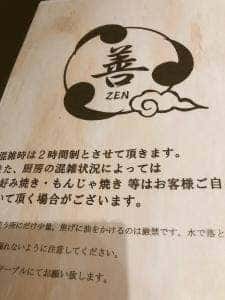 善
ZEN
混雑時は２時間制とさせて頂きます。
た、厨房の混雑状況によっては
好み焼き・もんじゃ焼き 等はお客様ご自
いて頂く場合がございます。
う所にだけ少量。焦げに油をかけるのは厳禁です、水で落と
れないように注意してください。
テーブルにてお願い致します。